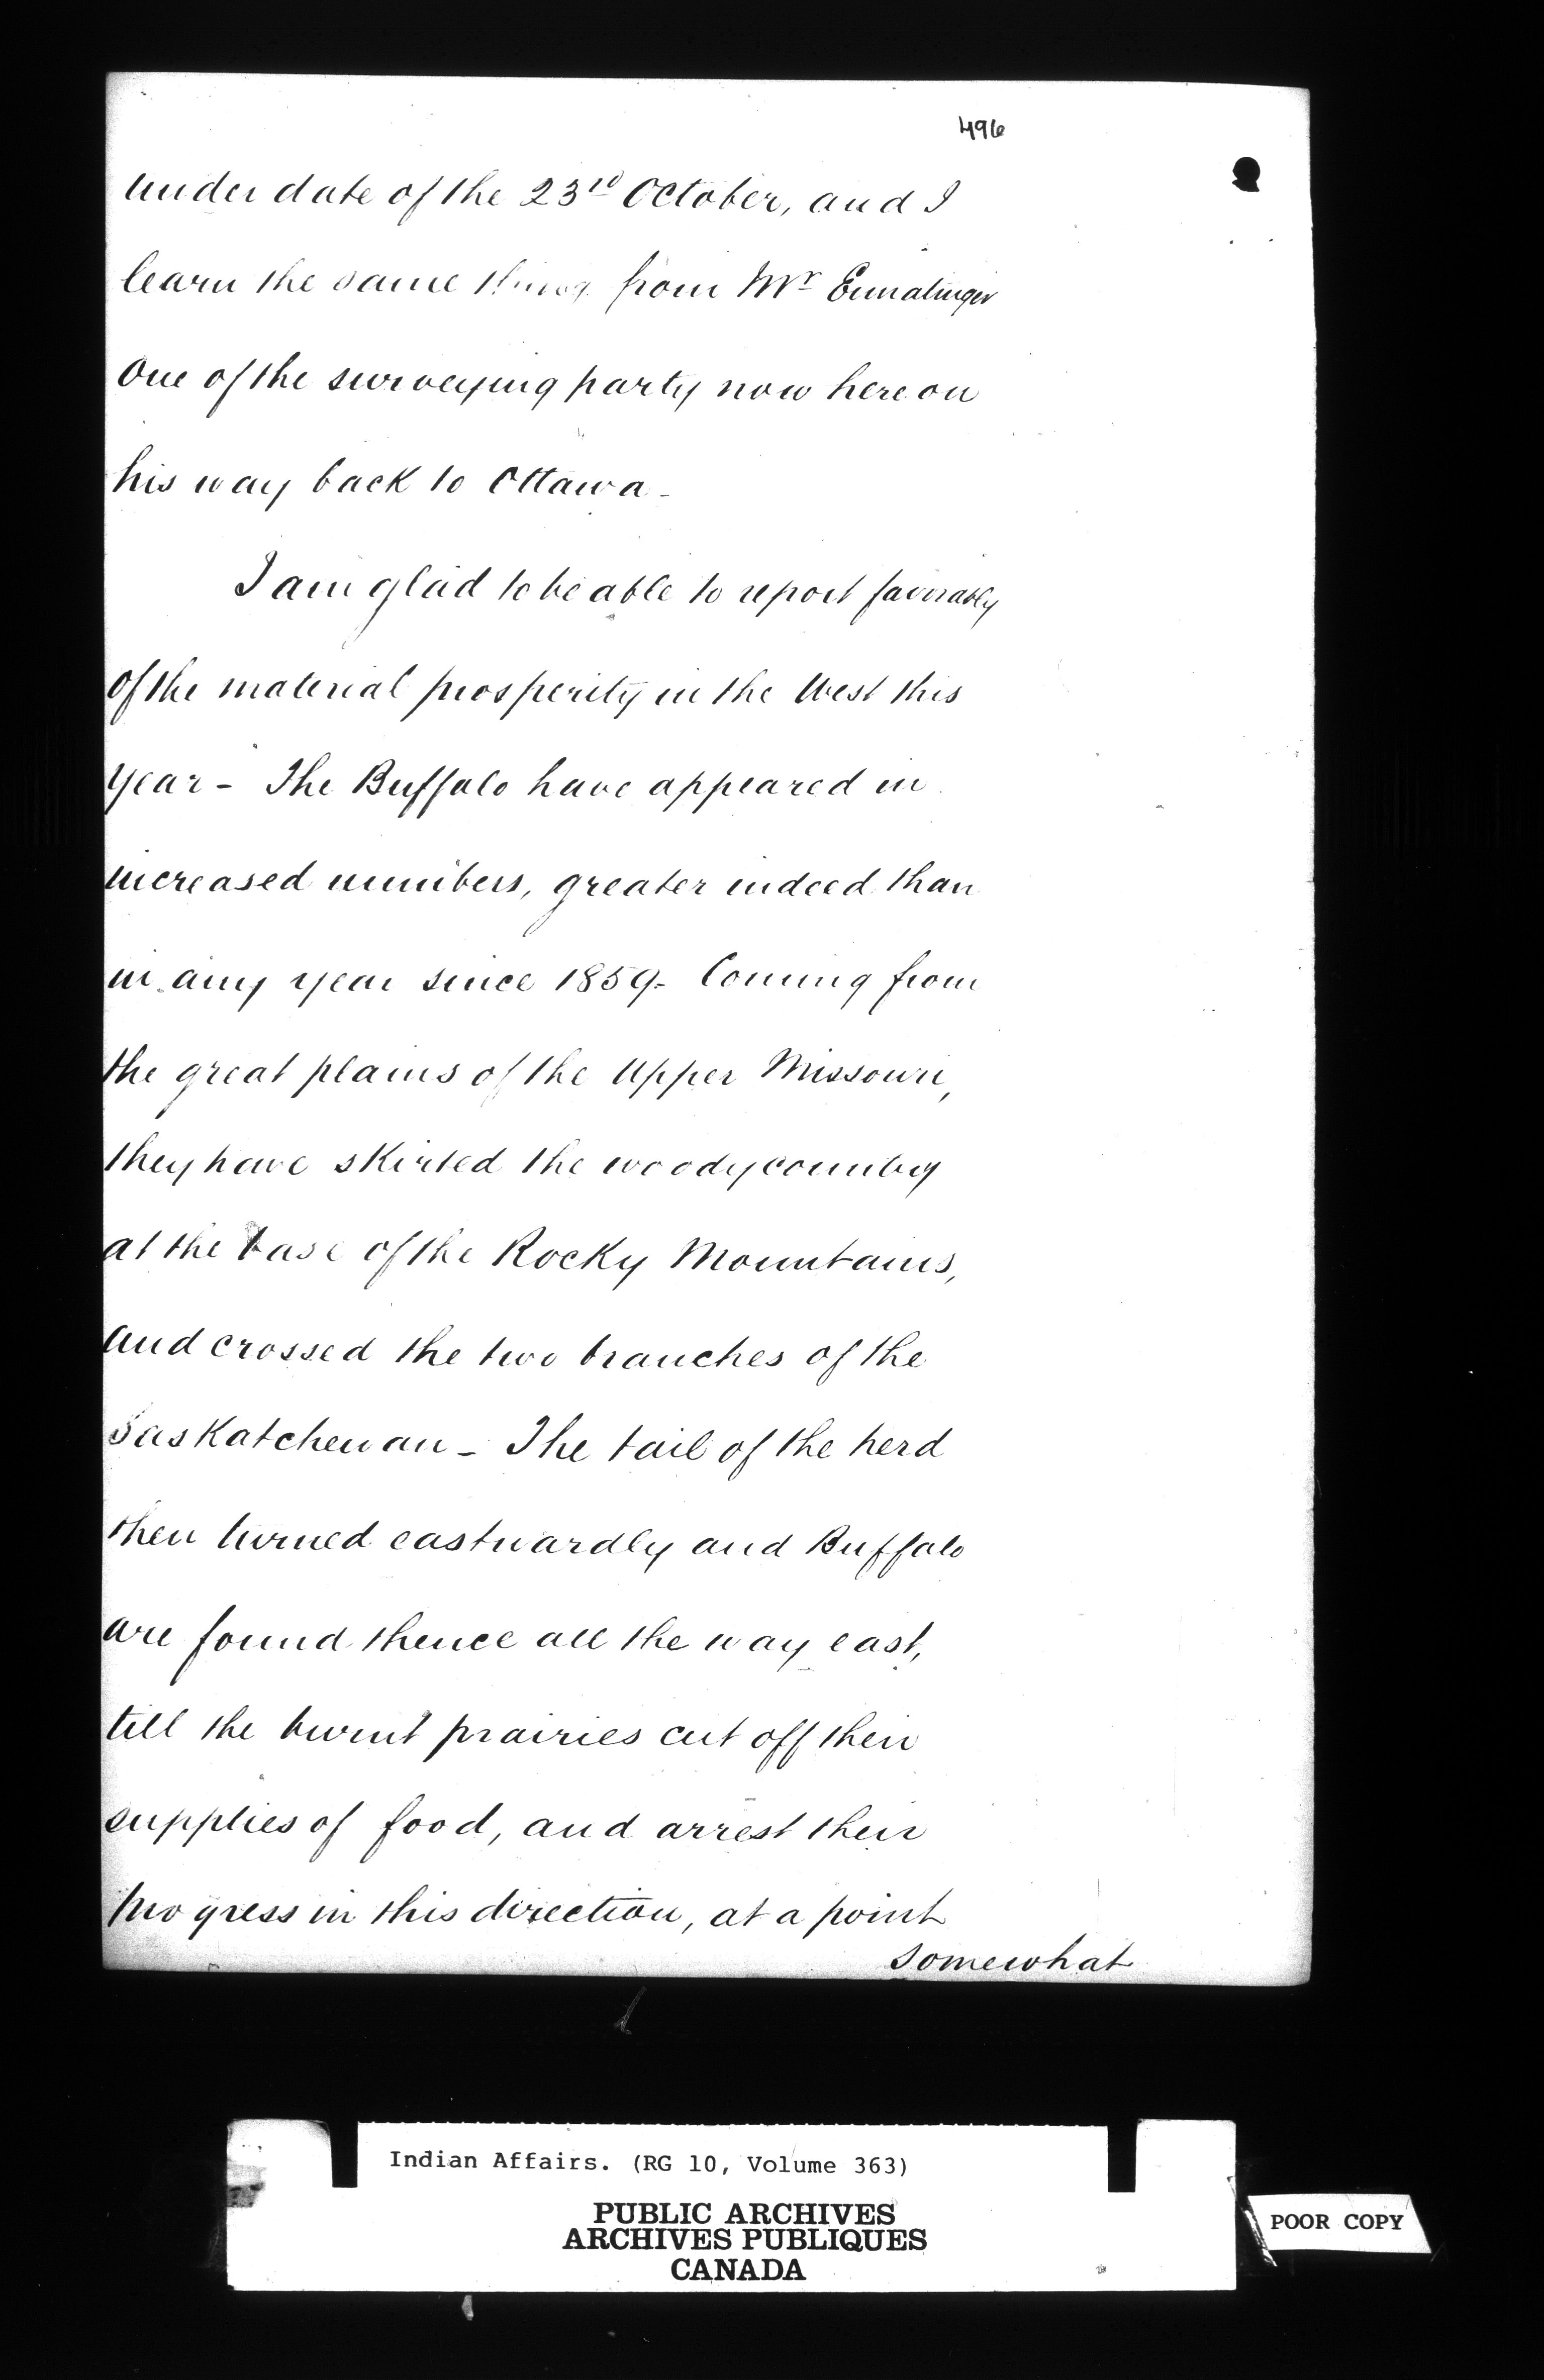 496
under date of the 23rd October, and I
learn the same thing from Mr Ermatinger
One of the surveying party now here on
his way back to Ottawa -
I am glad to be able to report favorably
of the material prosperity in the West this
year - The Buffalo have appeared in
increased numbers, greater indeed than
in any year since 1859 - Coming from
the great plains of the Upper Missouri,
they have skirted the woody country
at the base of the Rocky Mountains,
and crossed the two branches of the
Saskatchewan - The tail of the herd
then turned eastwardly and Buffalo
are found thence all the way east,
till the burnt prairies cut off their
supplies of food, and arrest their
progress in this direction, at a point
somewhat
Indian Affairs. (RG 10, Volume 363)
PUBLIC ARCHIVES
ARCHIVES PUBLIQUES
CANADA
POOR COPY